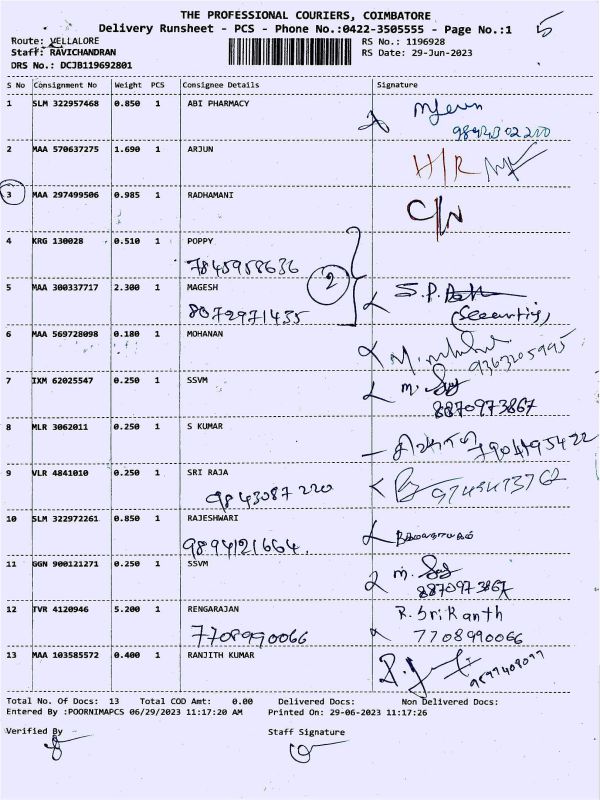 THE PROFESSIONAL COURIERS, COIMBATORE
Delivery Runsheet - PCS - Phone No.:0422-3505555 - Page No.:1
5
Route: VELLALORE
RS No.: 1196928
Staff: RAVICHANDRAN
RS Date: 29-Jun-2023
DRS No.: DCJB119692801
S No Consignment No Weight PCS Consignee Details Signature
1 SLM 322957468 0.850 1 ABI PHARMACY
2 MAA 570637275 1.690 1 ARJUN H/R
3 MAA 297499506 0.985 1 RADHAMANI C/N
4 KRG 130028 0.510 1 POPPY
7845958636
2
5 MAA 300337717 2.300 1 MAGESH S.P.
8072971435 (Security)
6 MAA 569728098 0.180 1 MOHANAN
9363205995
7 IXM 62025547 0.250 1 SSVM
8870973867
8 MLR 3062011 0.250 1 S KUMAR
9 VLR 4841010 0.250 1 SRI RAJA
9843087220
10 SLM 322972261 0.850 1 RAJESHWARI
9894121664.
11 GGN 900121271 0.250 1 SSVM
8870973867
12 TVR 4120946 5.200 1 RENGARAJAN R. Srikanth
7708990066 7708990066
13 MAA 103585572 0.400 1 RANJITH KUMAR
Total No. Of Docs: 13 Total COD Amt: 0.00 Delivered Docs: Non Delivered Docs:
Entered By :POORNIMAPCS 06/29/2023 11:17:20 AM Printed On: 29-06-2023 11:17:26
Verified By Staff Signature